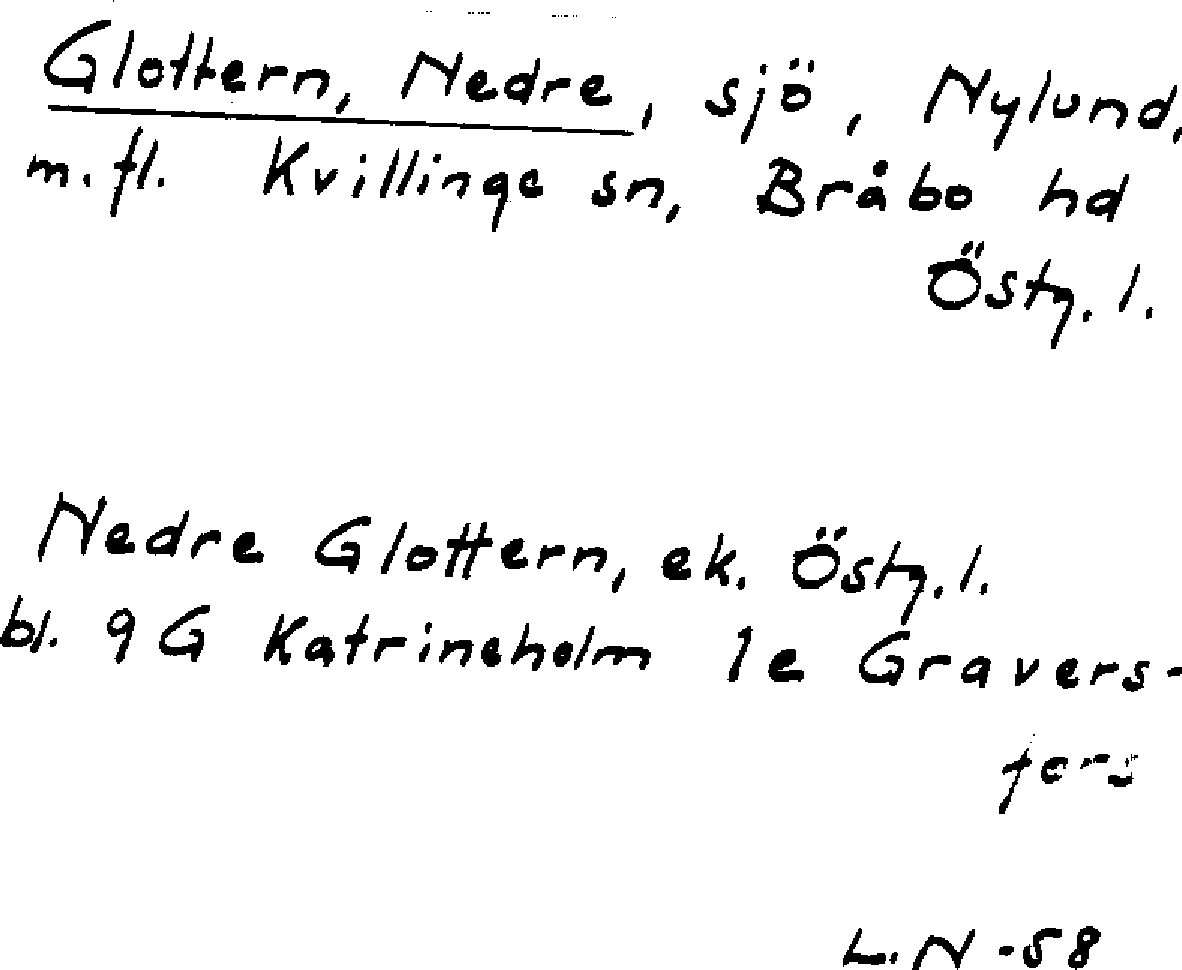 Glottern, Nedre, sjö, Nylund,
m.fl. Kvillinge sn, Bråbo hd
Östg. l.
Nedre Glottern, ek. Östg. l.
bl. 9 G Katrineholm 1e Gravers-
fors
L.N -58